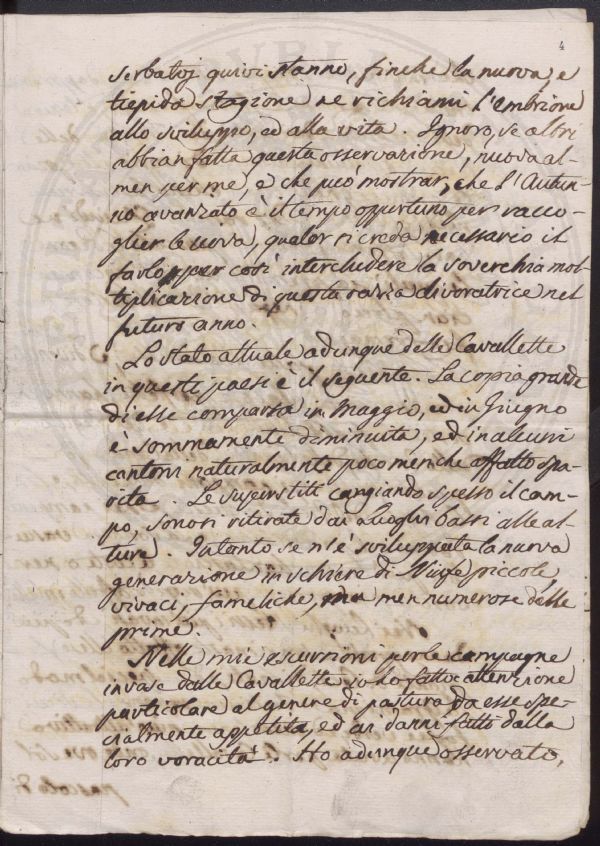 4
serbatoj quivi stanno, finche la nuova, e
tiepida stagione ne richiami l'embrione
allo sviluppo, ed alla vita. Ignoro, se altri
abbian fatta questa osservazione, nuova al-
men per me, e che può mostrar, che l'Autun-
no avanzato è il tempo opportuno per racco-
glier le uova, qualor si creda necessario il
farlo, per così intercludere la soverchia mol-
tiplicazione di questa razza divoratrice nel
futuro anno.
Lo stato attuale adunque delle Cavallette
in questi paesi è il seguente. La copia grande
di esse comparsa in Maggio, ed in Giugno
è sommamente diminuita, ed in alcuni
cantoni naturalmente poco men che affatto spa-
rita. Le superstiti cangiando spesso il cam-
po, sonosi ritirate dai luoghi bassi alle al-
ture. Intanto se n'è sviluppata la nuova
generazione in schiere di Ninfe piccole,
vivaci, fameliche, ma men numerose delle
prime.
Nelle mie escursioni per le campagne
invase dalle Cavallette io ho fatto attenzione
particolare al genere di pastura da esse spe-
cialmente appetita, ed ai danni fatti dalla
loro voracità. Ho adunque osservato,